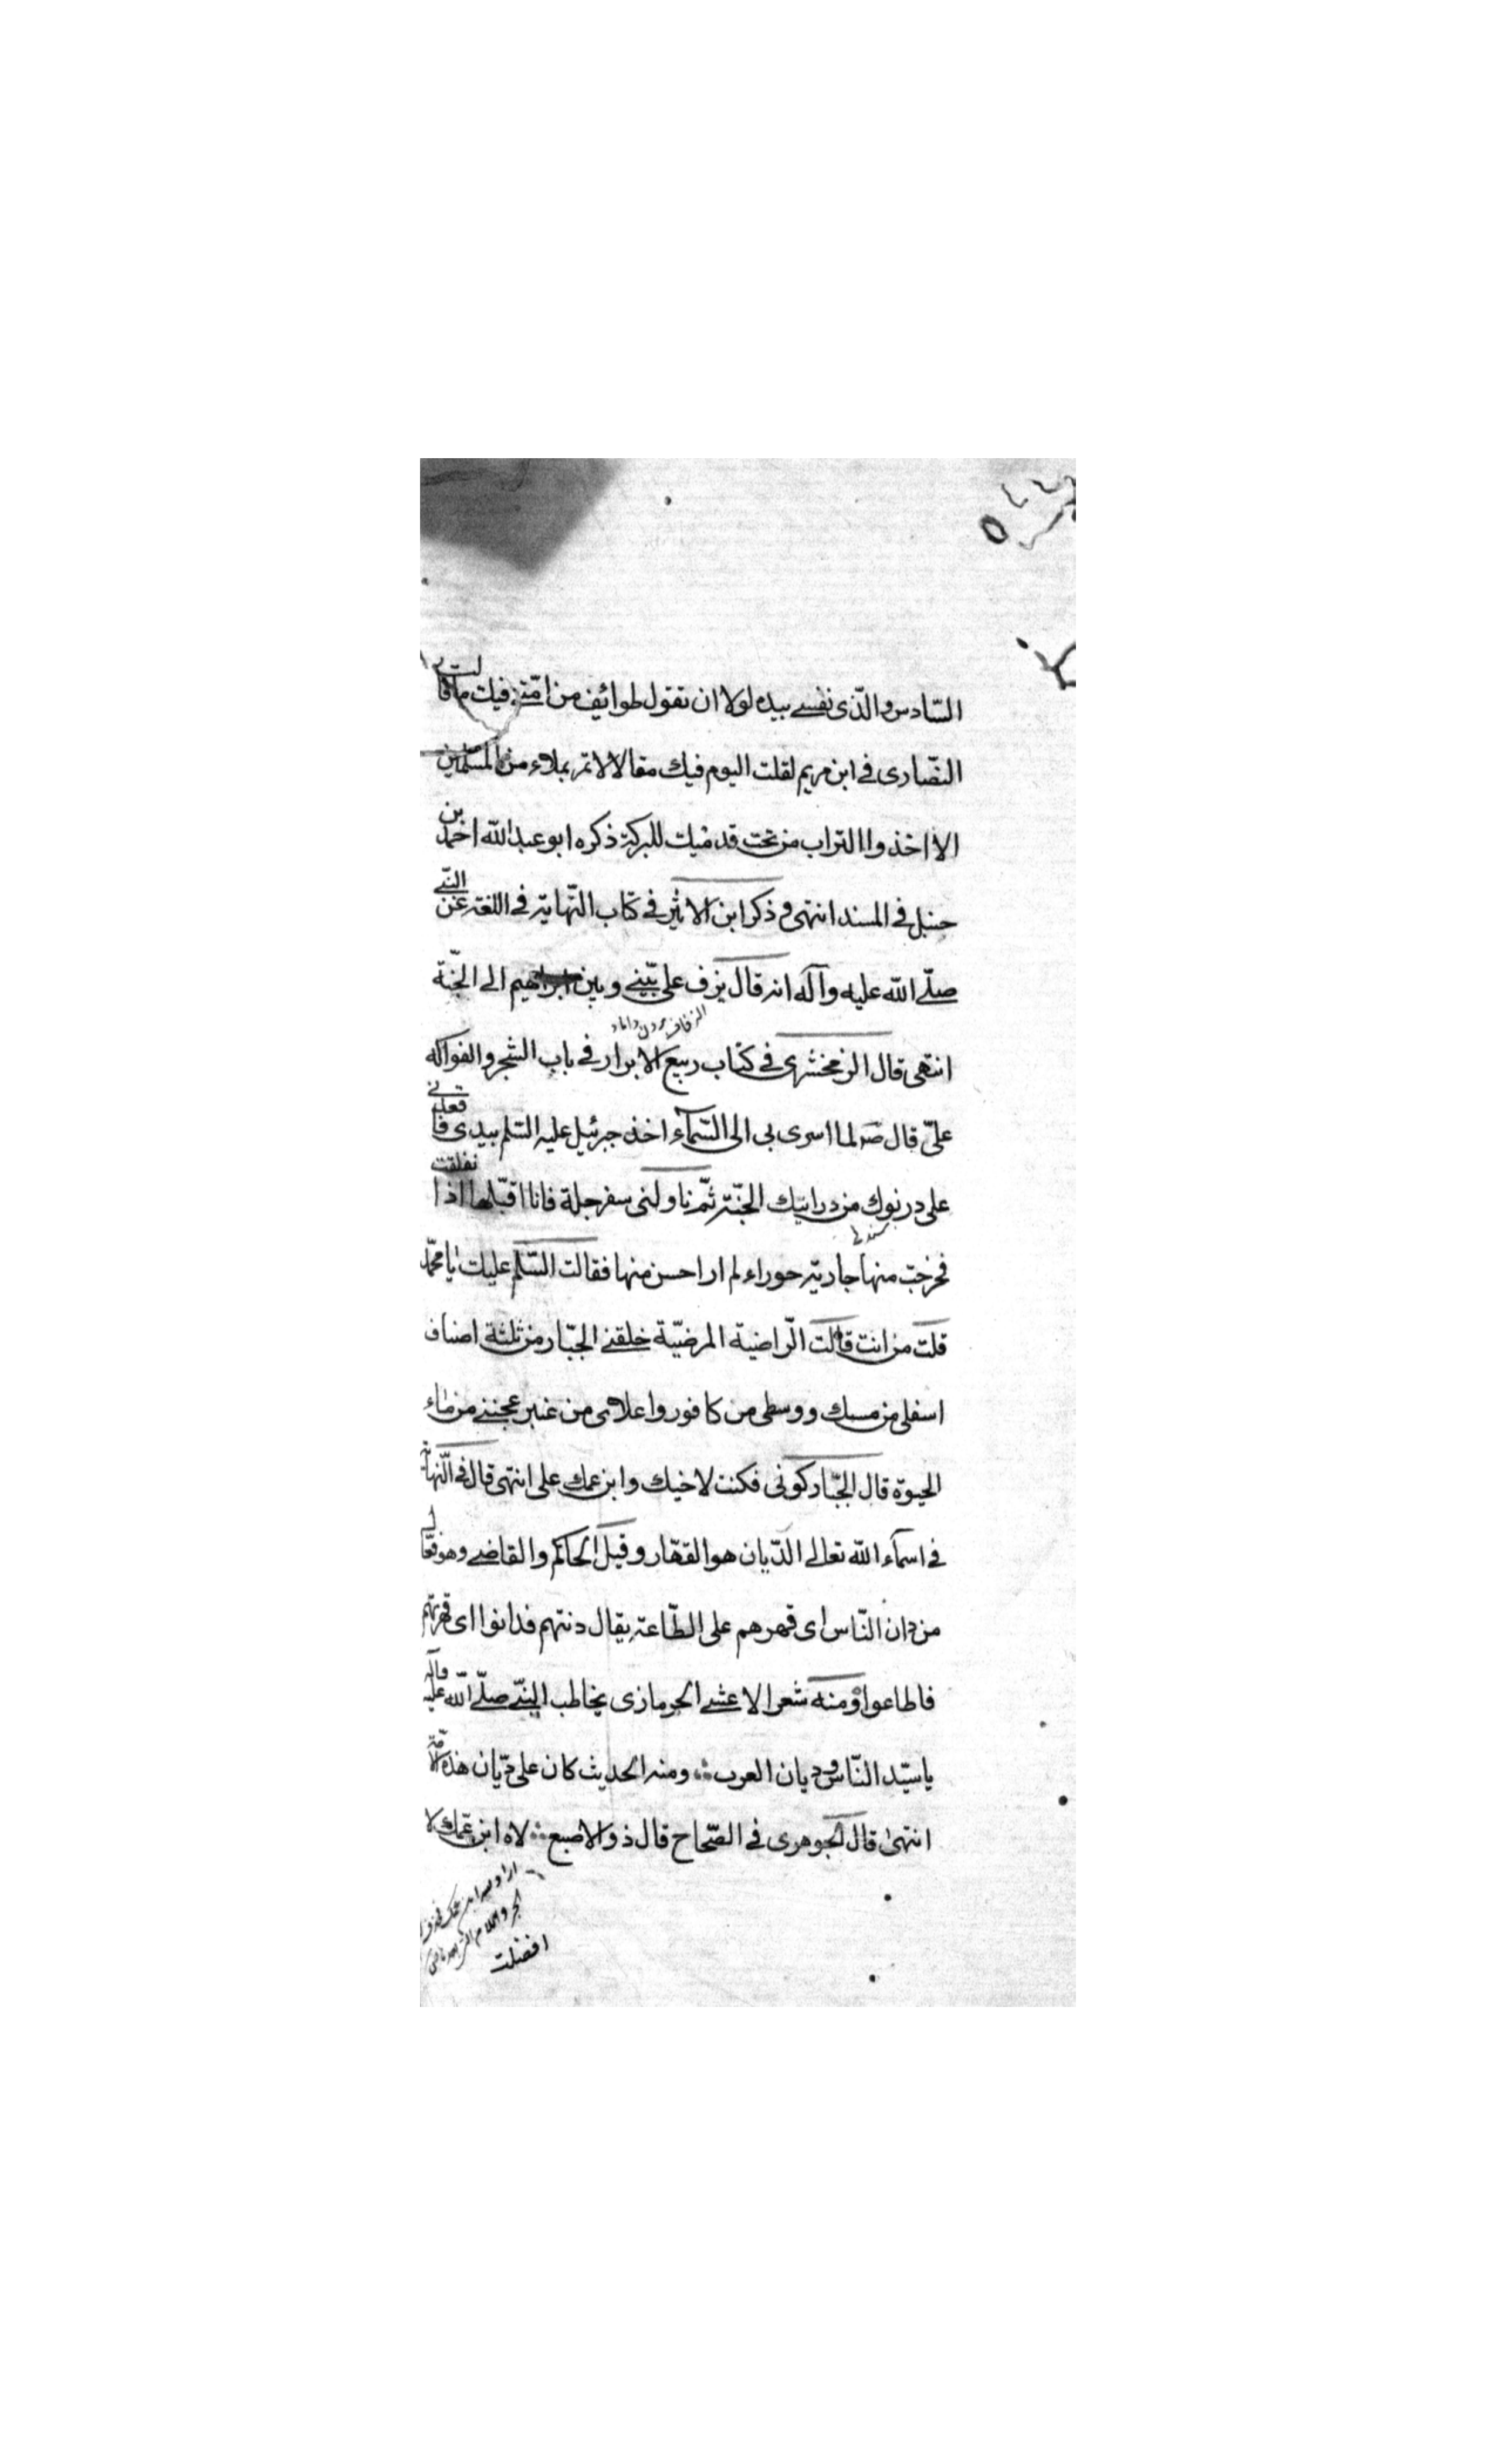 السّادس والّذى نفسے بيده لولا ان تقول طوائف من امّتے فيك ما قالت
النّصارى فے ابن مريم لقلت اليوم فيك مقالا لا تمر بملاء من المسلمين
الا اخذوا التراب من تحت قدميك للبركة ذكره ابو عبد الله احمد بن
حنبل فے المسند انتهى وذكر ابن الاثير فے كتاب النّهاية فے اللغة عن النّبے
صلّے الله عليه وآله انه قال يزف على بينے وبين ابراهيم الے الجنّة
الزفاف بردن داماد
انتهى قال الزمخشرى فے كتاب ربيع الابرار فے باب الشجر والفواكه
علىّ قال ص لما اسرى بى الى السّمآء اخذ جبرئيل عليه السّلم بيدى فاقعدنے
على درنوك من درانيك الجنّة ثمّ ناولنى سفرجلة فانا اقبّلها اذا نفلقت
فخرجت منها جارية حوراء لم ار احسن منها فقالت السّلم عليك يا محمّد
قلت من انت قالت الرّاضية المرضيّة خلقنے الجبّار من ثلثة اصناف
اسفلى من مسك ووسطى من كافور واعلاى من عنبر عجننے من ماء
الحيوة قال الجبّار كونى فكنت لاخيك وابن عمك على انتهى قال فے النّهاية
فے اسمآء الله تعالے الدّيان هو القهّار وقيل الحاكم والقاضے وهو فعّال
من دان النّاس اى قهرهم على الطّاعة يقال دنتهم فدانوا اى قهرتهم
فاطاعوا ومنه شعر الاعشے الحرمازى يخاطب النبّے صلّے الله عليه وآله
يا سيّد النّاس وديان العرب ومنه الحديث كان على ديّان هذه الامّة
انتهىٰ قال الجوهرى فے الصّحاح قال ذو الاصبع لاه ابن عمّك لا
افضلت